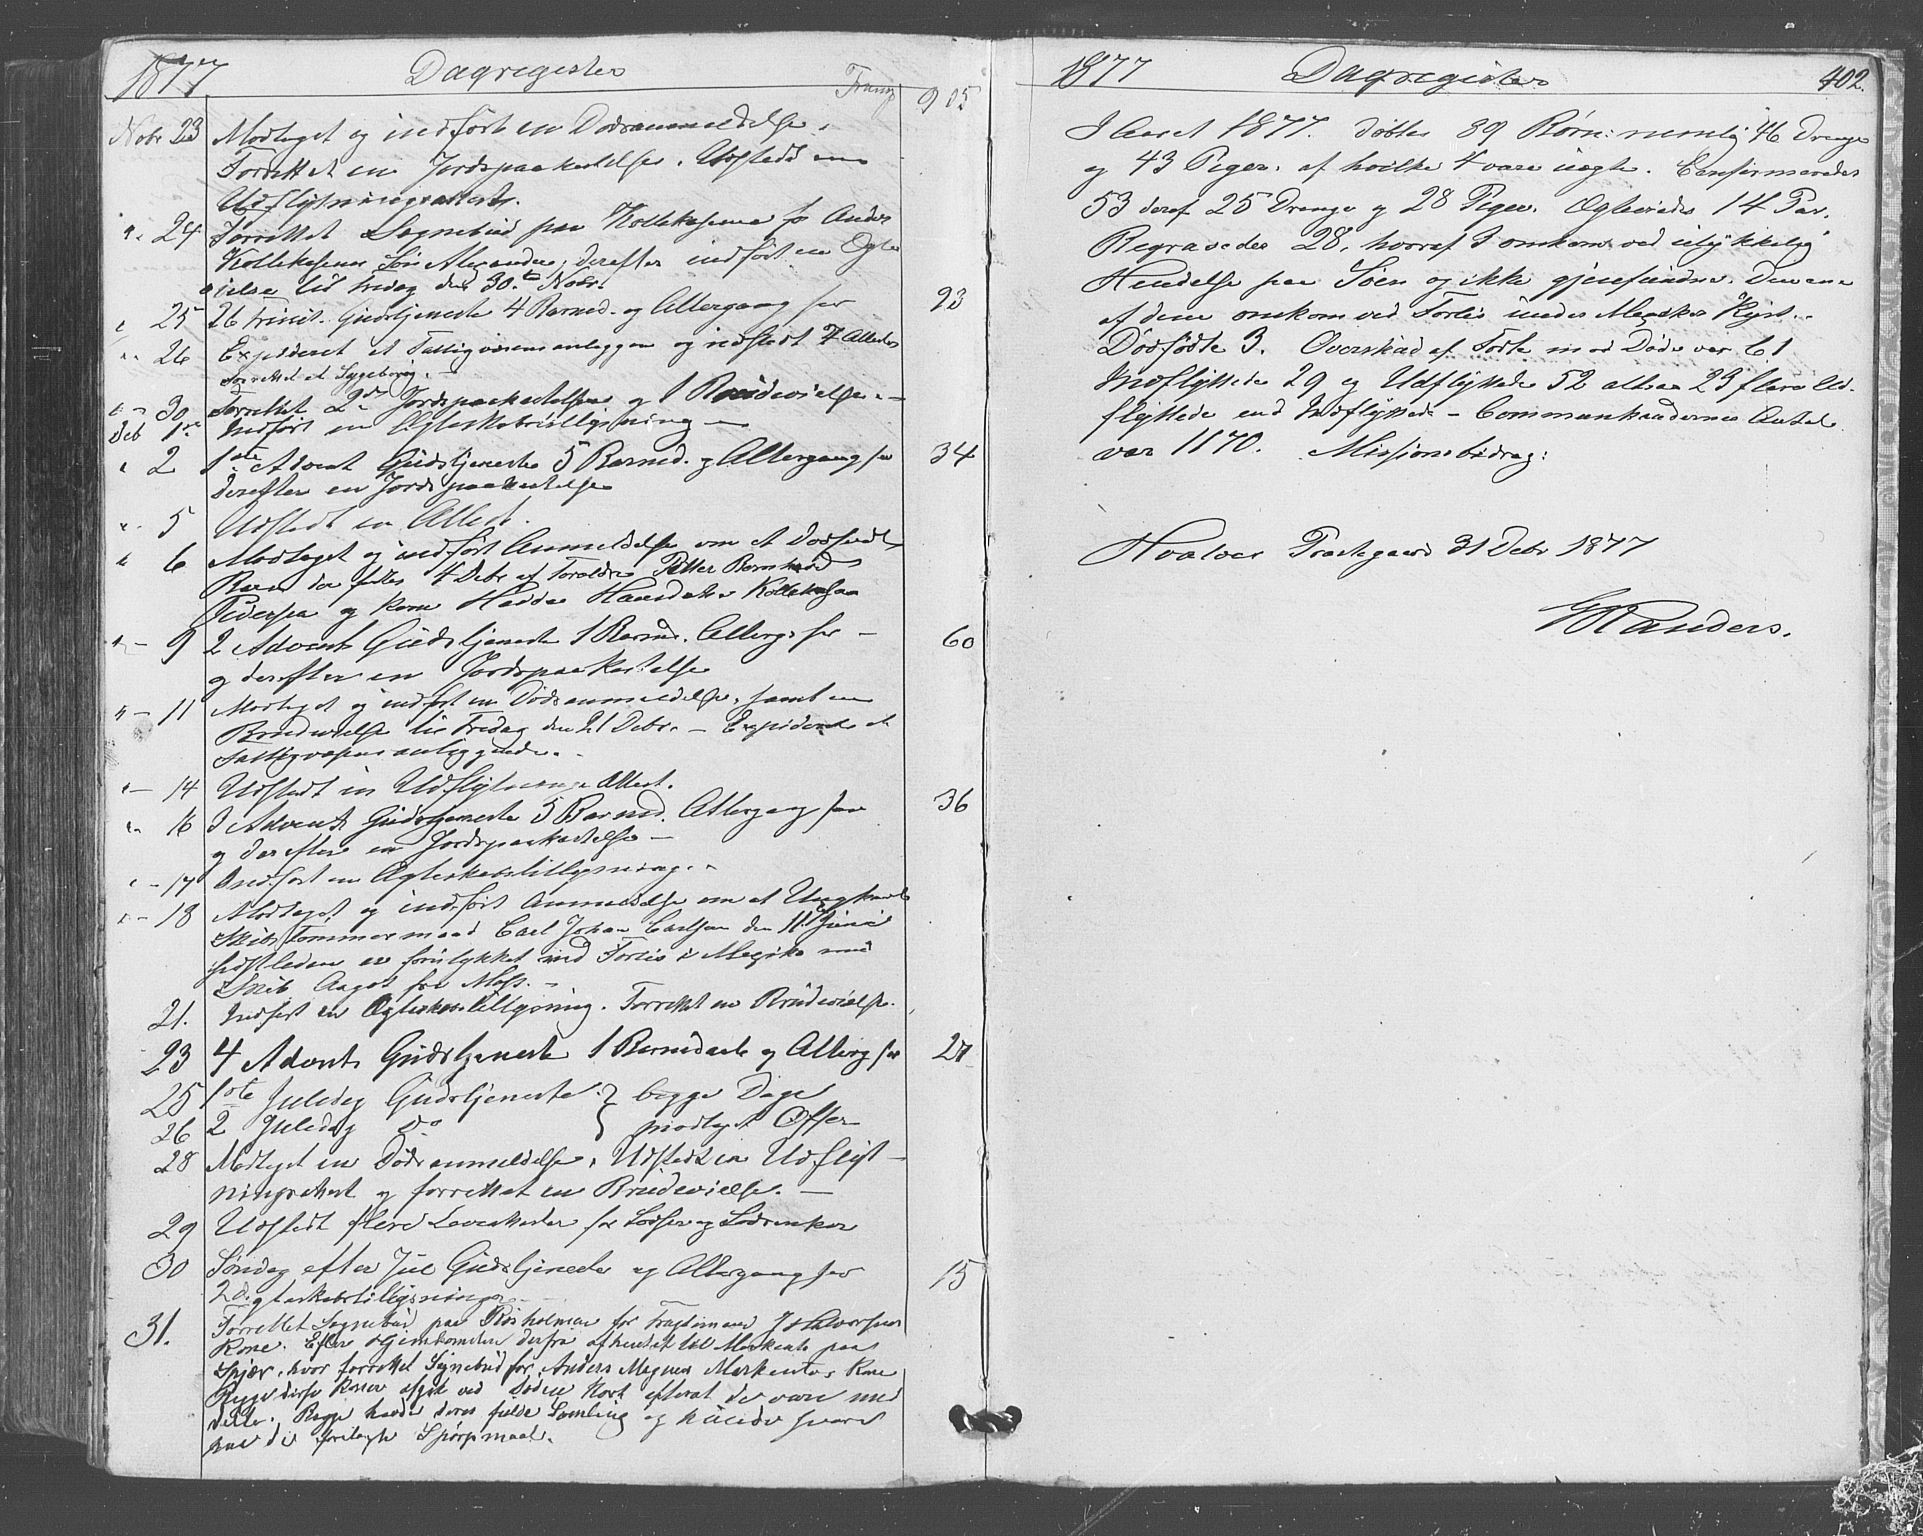 1877 Dagregister
Transp 905
Nobr 23 Modtaget og indført en Dødsanmeldelse.
Forrettet en Jordspaakastelse. Udstedt en
Udflytningsattest.
" 24 Forrettet Sognebud paa Kollekasene for Anders
Kollekasenes Søn Alexander; derefter indført en Ægte
vielse til Fredag den 30.te Nobr.
" 25 26 Trinit. Gudstjeneste 4 Barned. og Altergang for 93
" 26 Expideret et Fattigvæsensanliggen og udstedt 7 Attester
Forrettet et Sygebesøg.
" 30 Forrettet 2de Jordspaakastelser og 1 Brudevielse. –
Deb 1ste Indført en Ægteskabstillysning –
" 2 1ste Advent Gudstjeneste 5 Barned. og Altergang for 34
derefter en Jordspaakastelse
" 5 Udstedt en Attest.
" 6 Modtaget og indført Anmeldelse om et dødfødt
Barn der fødtes 4 Debr af Forældre Petter Bernhard
Pedersen og Kone Hedda
" – 9 2 Advent Gudstjeneste 1 Barned. Alterg. for – 60
og derefter en Jordspaakastelse
" – 11 Modtaget og indført en Dødsanmeldelse, samt en
Brudevielse til Fredag den 21 Debr. – Expideret et
Fattigvæsensanliggende. –
" – 14 Udstedt en Udflytnings Attest.
" 16 3 Advent Gudstjeneste 5 Barned. Altergang for 36
og derefter en Jordspaakastelse –
" – 17 Indført en Ægteskabstillysning. –
" – 18 Modtaget og indført Anmeldelse om at Ungkarl
Skibstømmermand Carl Johan Carlsen den 11 Juni
sidstleden er forulykket ved i Mexiko med
Skib Aagot fra Moss. –
21. Indført en Ægteskabstillysning. Forrettet en Brudevielse.
23 4 Advent Gudstjeneste 1 Barnedaab og Alterg for 27
25 1ste Juledag Gudstjeneste } begge Dage
26 2 Juledag do } modtaget Offer
28 Modtaget en Dødsanmeldelse, Udstedt en Udflyt–
ningsattest og forrettet en Brudevielse. –
29 Udstedt flere Leveattester for Lodser og Lodsenker
30 Søndag efter Jul Gudstjeneste og Altergang for 15
2 Ægteskabstillysninger
31. Forrettet Sognebud paa for
Kone. Efter Hjemkomsten derfra afhentet til paa
Spjær, hvor forrettet Sognebud for Anders Magnus Kone
Begge disse Koner afgik ved Døden kort efterat de vare med
delte. Begge havde deres fulde Samling og kunde svare
paa de forelagte Spørgsmaal.
1877 Dagregister 402.
I Aaret 1877. døbtes 89 Børn: nemlig 46 Drenge
og 43 Piger. af hvilke 4 vare uægte. Confirmeredes
53 deraf 25 Drenge og 28 Piger. Ægteviedes 14 Par.
Begravedes 28, hvoraf omkom ved ulykkelig
Hendelse paa Søen og ikke gjenfundne. Den ene
af dem omkom ved under Mexikos Kyst. –
Dødfødte 3. Overskud af Fødte mod Døde var 61
Indflyttede 29 og Udflyttede 52 altsaa 23 flere Ud-
flyttede end Indflyttede – Communikandernes Antal
var 1170. Missionsbidrag:
Hvaler Prestegaard 31 Debr 1877
Randers.